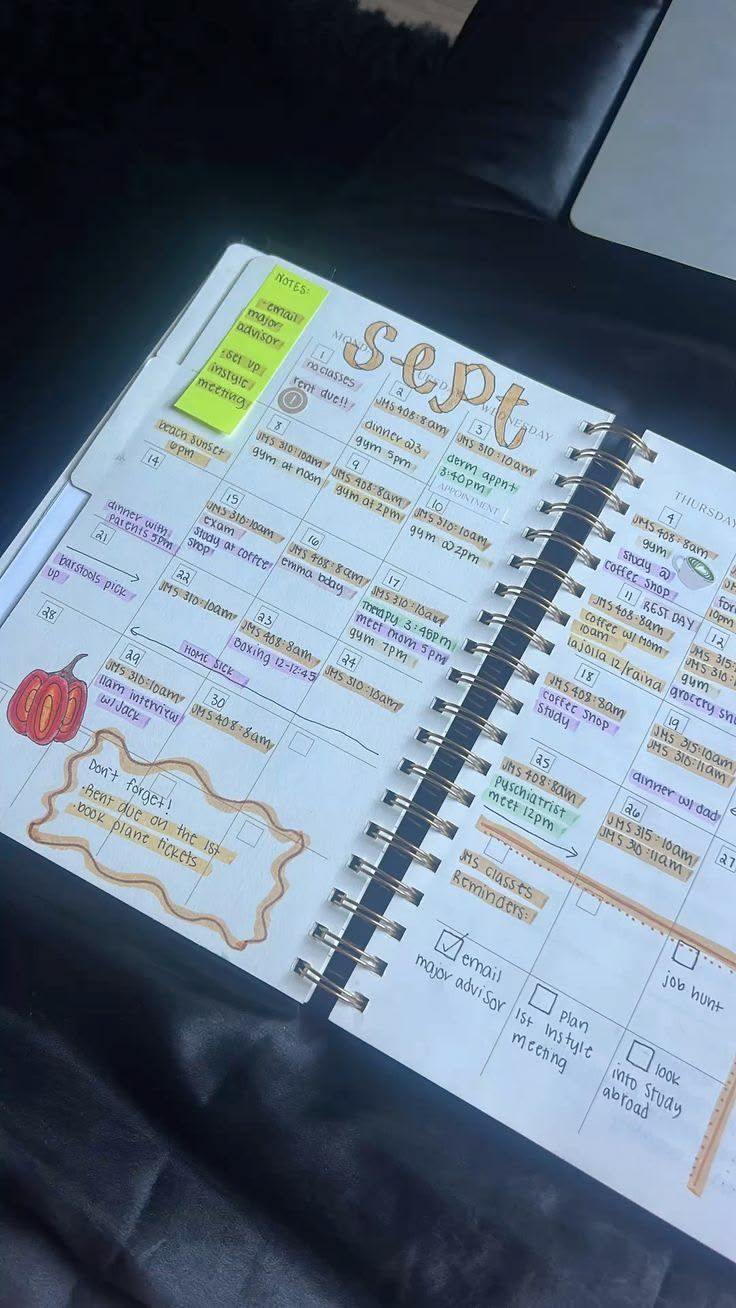 NOTES:
- email
major
advisor
- set up
instyle
meeting
Sept
WEDNESDAY
1
no classes
rent due!!
2
JMS 408:8am
dinner @ 3
gym 5pm
3
JMS 310:10am
derm appnt
3:40pm
APPOINTMENT
beach sunset
6pm
8
JMS 310:10am
gym at noon
9
JMS 408:8am
gym at 2pm
10
JMS 310:10am
gym @ 2pm
14
dinner with
parents 5pm
15
JMS 310:10am
exam
study at coffee
shop
16
JMS 408:8am
emma bday
17
JMS 310:10am
Therapy 3:45pm
meet mom 5pm
gym 7pm
21
barstools pick
up
22
JMS 310:10am
23
JMS 408:8am
boxing 12-12:45
24
JMS 310:10am
HOME SICK
28
29
JMS 310:10am
11am interview
w/Jack
30
JMS 408:8am
Don't forget!
- Rent due on the 1st
- book plane tickets
THURSDAY
4
JMS 408:8am
gym
study @
coffee shop
10pm
11
REST DAY
JMS 408:8am
coffee w/ Mom
10am
lajolla 12/raina
12
JMS 315:
JMS 310:
gym
grocery
18
JMS 408:8am
coffee shop
study
19
JMS 315:10am
JMS 310:11am
dinner w/ dad
25
JMS 408:8am
pyschiatrist
meet 12pm
26
JMS 315:10am
JMS 310:11am
27
JMS classes
Reminders:
email
major advisor
plan
1st instyle
meeting
look
into study
abroad
job hunt